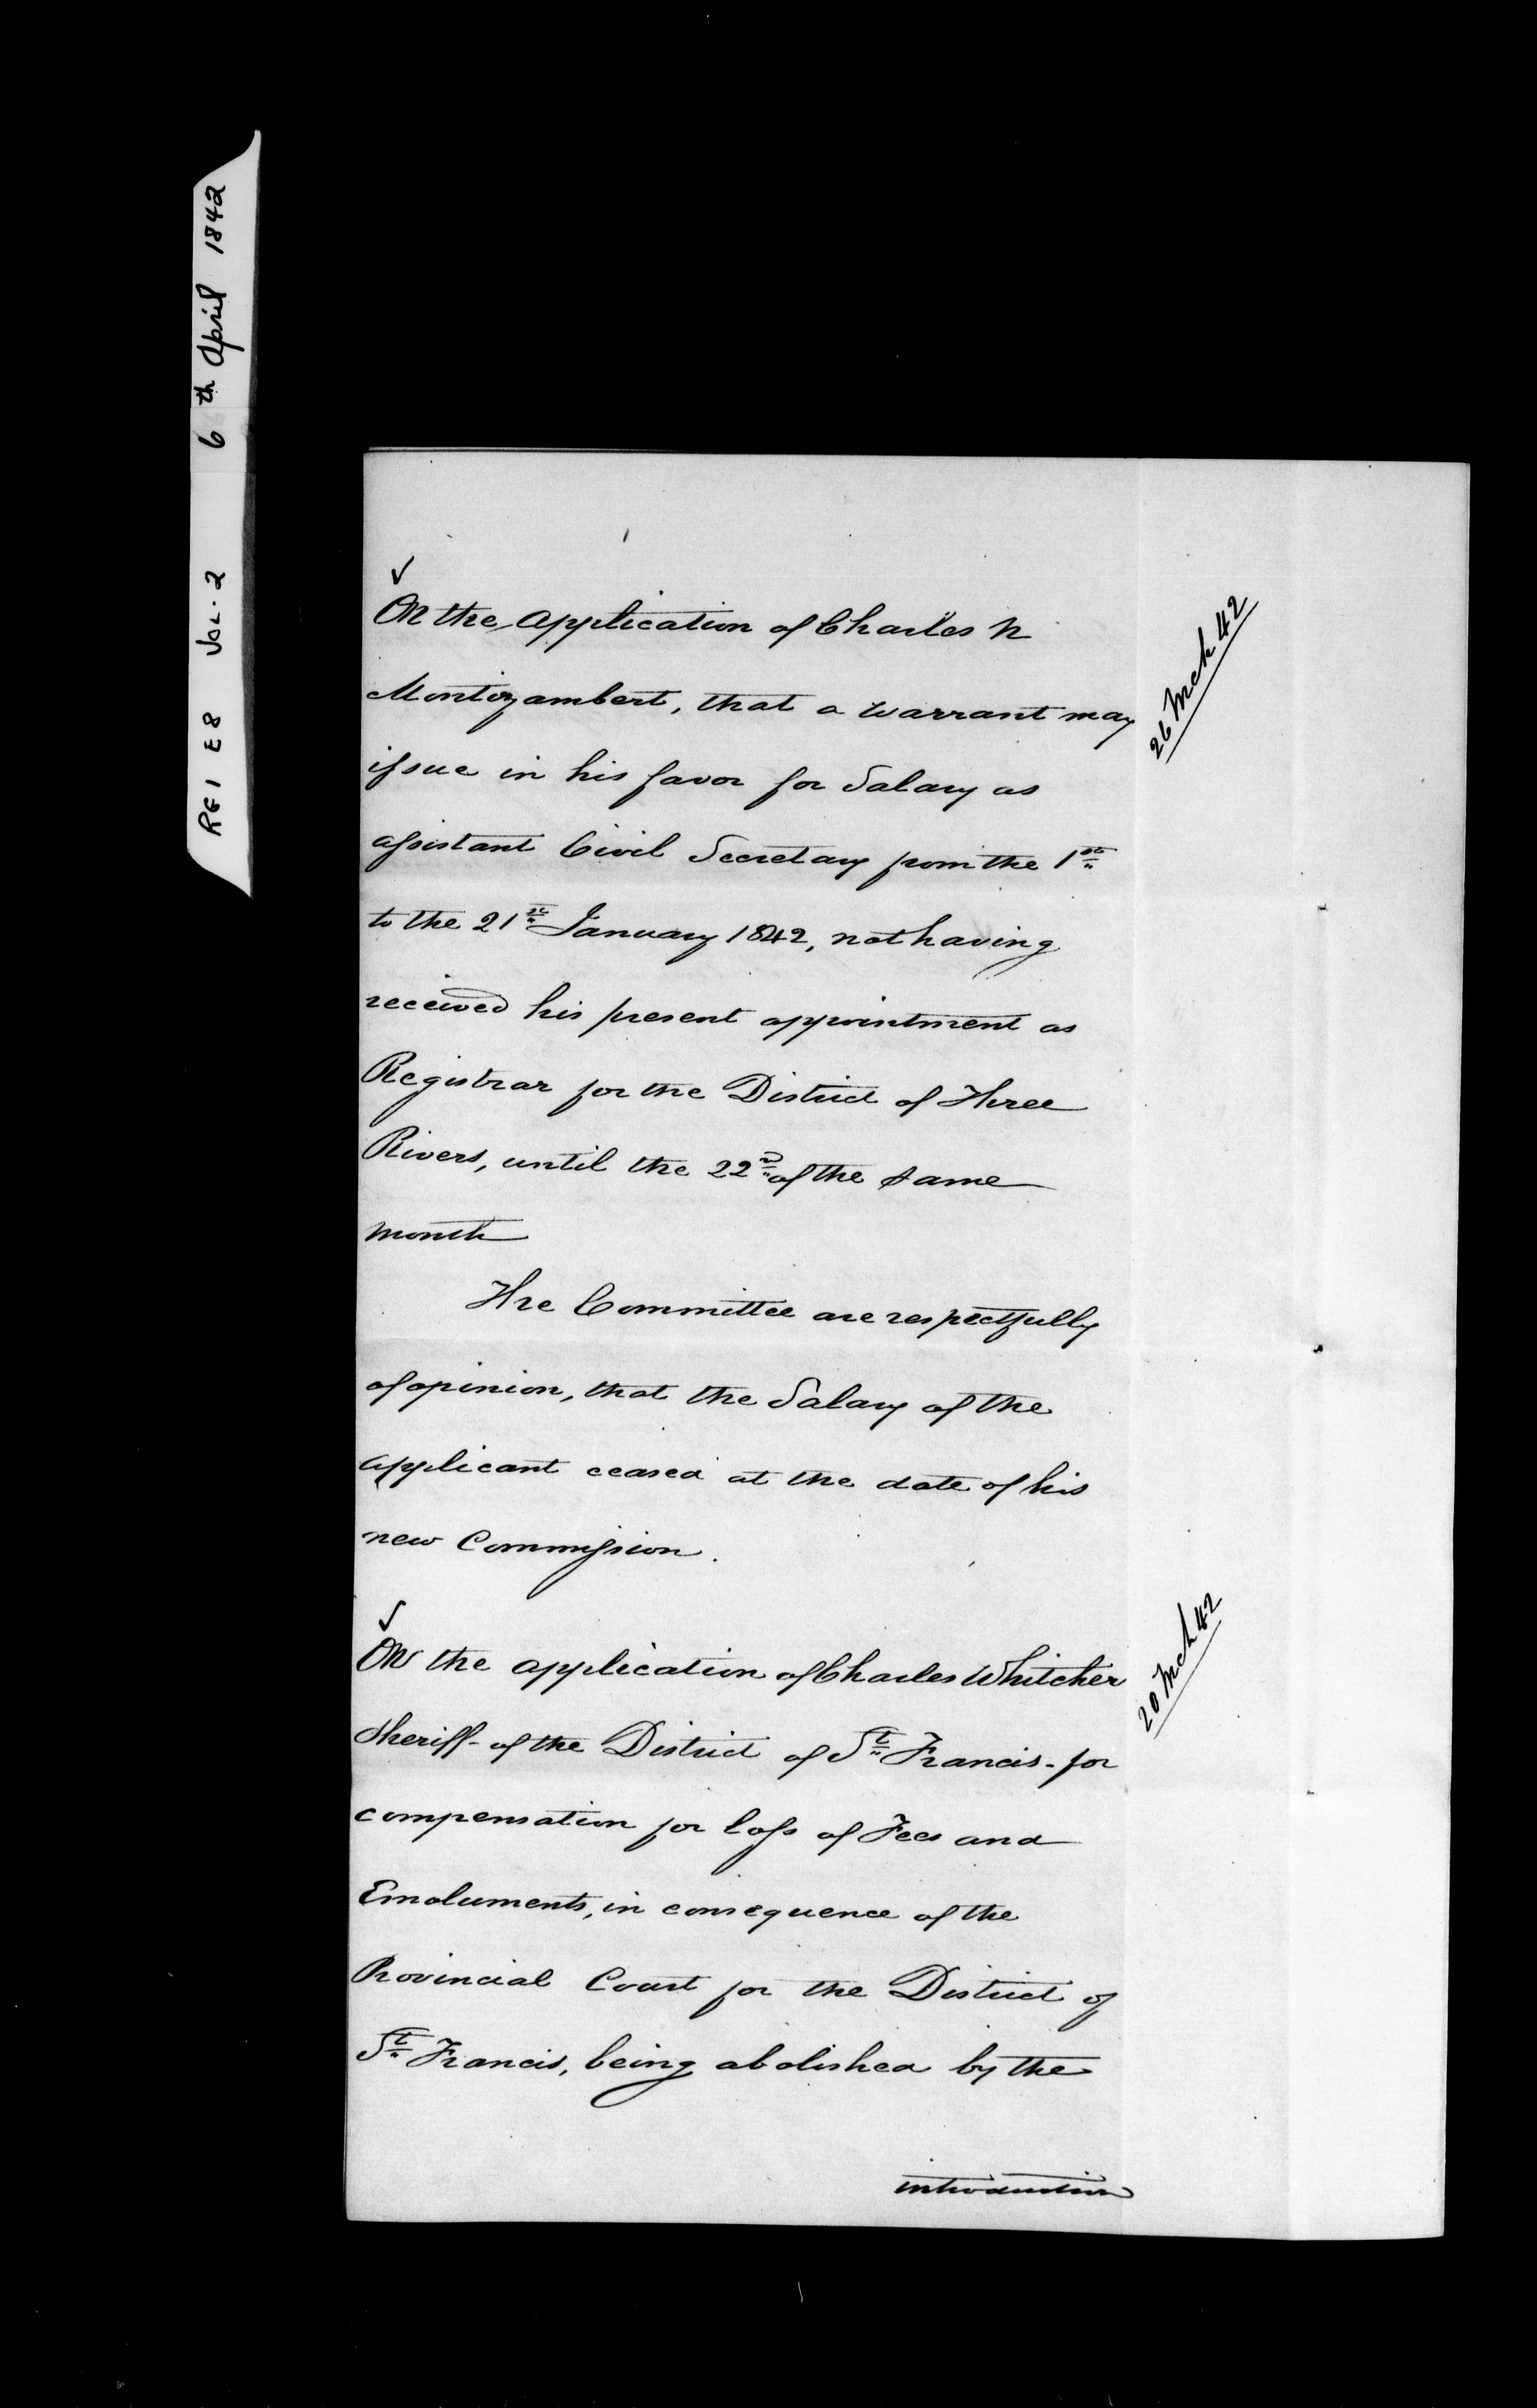 RG1 E8 VOL. 2 6th April 1842
✓
On the Application of Charles N
Montizambert, that a warrant may
issue in his favor for Salary as
assistant Civil Secretary from the 1st
to the 21st January 1842, not having
received his present appointment as
Registrar for the District of Three
Rivers, until the 22nd of the same
month
26 Mch 42
The Committee are respectfully
of opinion, that the Salary of the
applicant ceased at the date of his
new Commission.
✓
On the application of Charles Whitcher
Sheriff of the District of St Francis - for
compensation for loss of Fees and
Emoluments, in consequence of the
Provincial Court for the District of
St Francis, being abolished by the
20 Mch 42
introduction